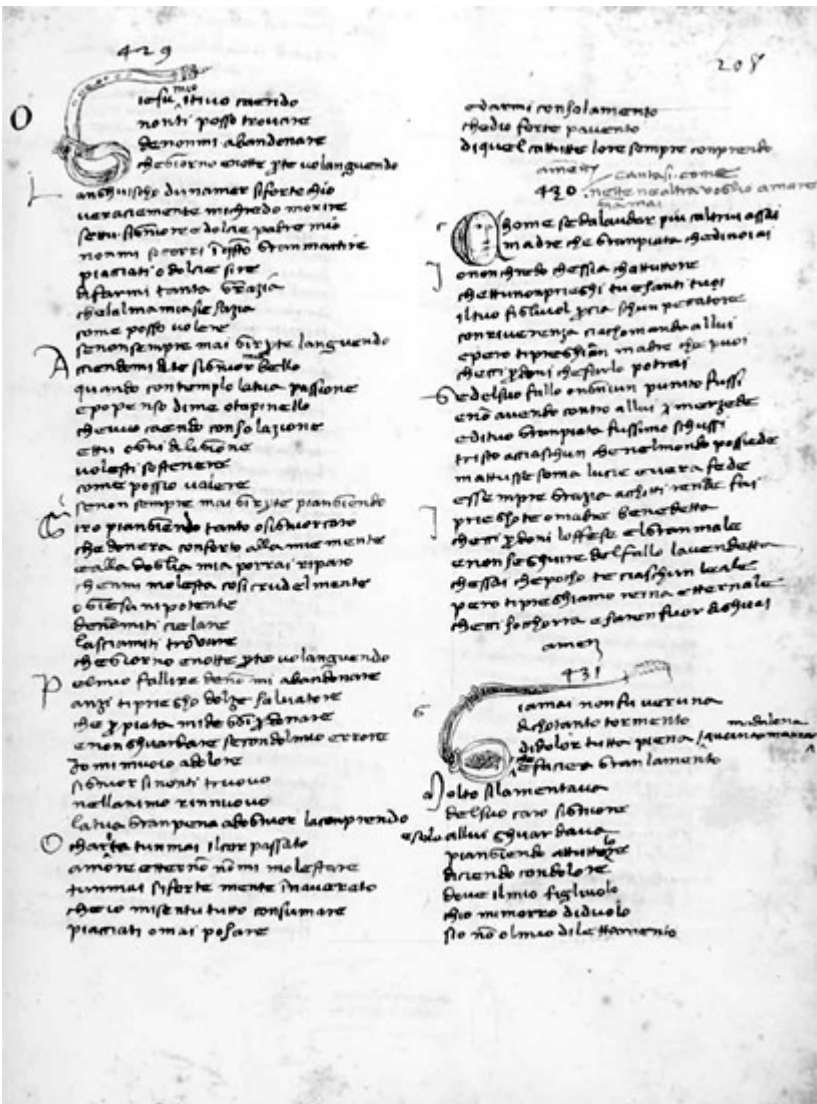 429
208
O
Giesu mio ituvo caendo
nonti posso trovare
denonmi abandonare
che giorno enotte p te vo languendo
Languischo dunamor siforte chio
veracemente michredo morire
settu signiore o dolcie padre mio
nonmi socorri
piacciati o dolcie sire
difarmi tanta grazia
chelalma mia sie sazia
come posso volere
senonsempre mai gir p te languendo
Acciendomi dite signior bello
quando contemplo latua passione
epo penso dime otapinello
chevvo caendo consolazione
ettu ogni diligione
volesti sostenere
come possio volere
senon sempre mai gir p te piangiendo
Giro piangiendo tanto o signior caro
che donera conforto alla mie mente
e alla doglia mia porrai riparo
chemmi molesta cosi crudelmente
o giesu nipotente
denonmiti cielare
lasciamiti trovare
che giorno enotte p te vo languendo
Pelmio fallire deno mi abandonare
anzi tipriegho dolze salvatore
che p pieta mide gi p donare
enonsghuardare secondolmio errore
Io mi muoio adolore
signior sinonti truovo
nellanimo rinnuovo
latua gran pena
O charita tunmai ilcor passato
amore etterno no mi molestare
tunmai siforte mente inaverato
cheio misentu tutto consumare
piacciati omai posare
edarmi consolamento
chedio forte pavento
diquel cattutte lore sempre comprendo
amen
430 cantasi come
nette nealtra voglio amare
giamai
Chome sedalaudar piu caltrui assai
madre che granpiata chedinoiai
Io non chredo chessia chatuttore
chettunonprieghi tue santi tuoi
iltuo figliuol p cia schun peccatore
conriverenza ciachomanda allui
epero tipreghian madre che puoi
chetti p doni chefarlo potrai
Sedelsuo fallo ongniun punito fussi
eno avendo contro allui merzede
editua granpiata fussimo schussi
tristo aciaschun chenelmondo possiede
mattusse soma lucie evera fede
essempre grazia achitti rende fai
Iprieghote omadre benedetta
chetti p doni loffese elgran male
enonseghuire delfallo lavendetta
chessai cheporto te ciaschun leale
pero tipreghiamo reina etternale
chetti sochorra efaren fuor diguai
amen
431
Giamai nonfu veruna
dichotanto tormento
didolor tutta piena madalena
efaciera gran lamento
Molto silamentava
delsuo caro signiore
esolo allui sghuardava
piangiendo attuttore
diciendo condolore
dove ilmio figliuolo
chio mimorro diduolo
sio no olmio dilettamento